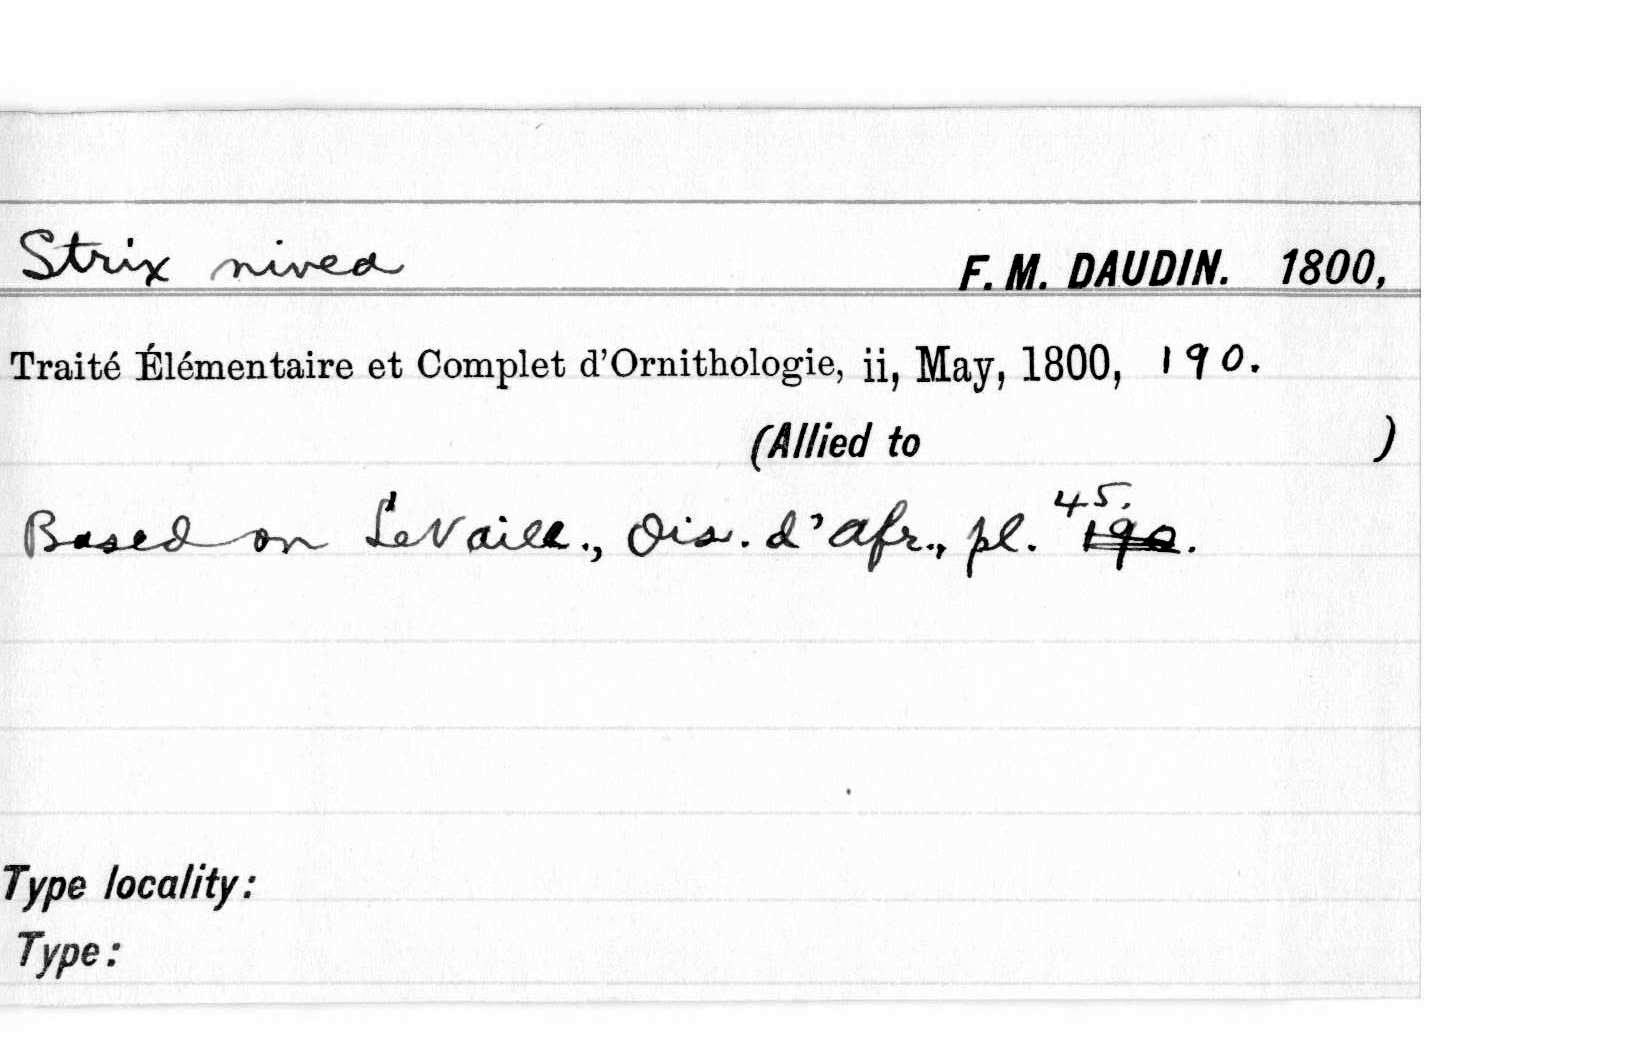 Strix nivea F. M. DAUDIN. 1800,
Traité Élémentaire et Complet d'Ornithologie, ii, May, 1800, 190.
(Allied to )
Based on LeVaill., Ois. d'Afr., pl. 45. 190.
Type locality:
Type: